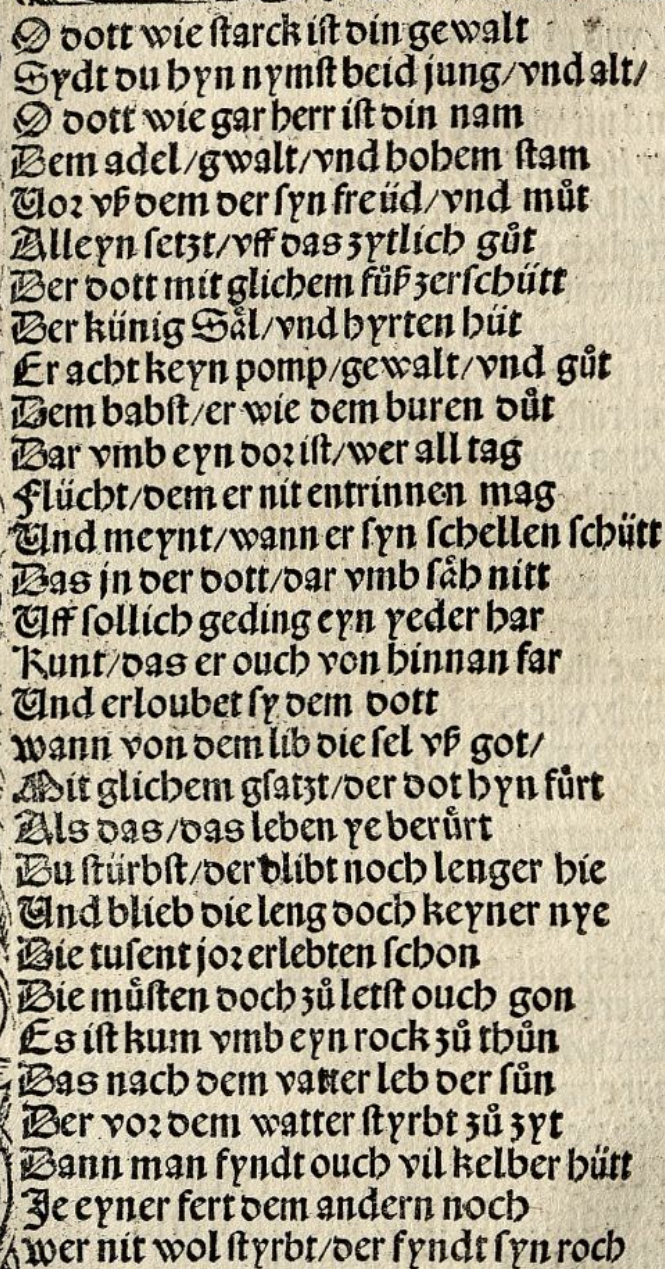 O dott wie starck ist din gewalt
Sydt du hyn nymst beid jung/vnd alt/
O dott wie gar herr ist din nam
Dem adel/gwalt/vnd hohem stam
Vor vß dem der syn freüd/vnd můt
Alleyn setzt/vff das zytlich gůt
Der dott mit glichem fůß zerschütt
Der künig Säl/vnd hyrten hüt
Er acht keyn pomp/gewalt/vnd gůt
Dem babst/er wie dem buren důt
Dar vmb eyn dor ist/wer all tag
Flücht/dem er nit entrinnen mag
Vnd meynt/wann er syn schellen schütt
Das jn der dott/dar vmb säh nitt
Vff sollich geding eyn yeder har
Kunt/das er ouch von hinnan far
Vnd erloubet sy dem dott
wann von dem lib die sel vß got/
Mit glichem gsatzt/der dot hyn fůrt
Als das/das leben ye berůrt
Du stürbst/der blibt noch lenger hie
Vnd blieb die leng doch keyner nye
Die tusent jor erlebten schon
Die můsten doch zů letst ouch gon
Es ist kum vmb eyn rock zů thůn
Das nach dem vatter leb der sůn
Der vor dem watter styrbt zů zyt
Dann man fyndt ouch vil kelber hütt
Je eyner fert dem andern noch
wer nit wol styrbt/der fyndt syn roch